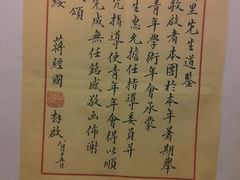 里先生道鑒
敬啟者本團於本年暑期舉
青年學術年會承蒙
生惠允擔任指導委員并
允指導使青年年會得以順
完成無任銘感敬此佈謝
頌
綏
蔣經國
拜啟 八月十五日